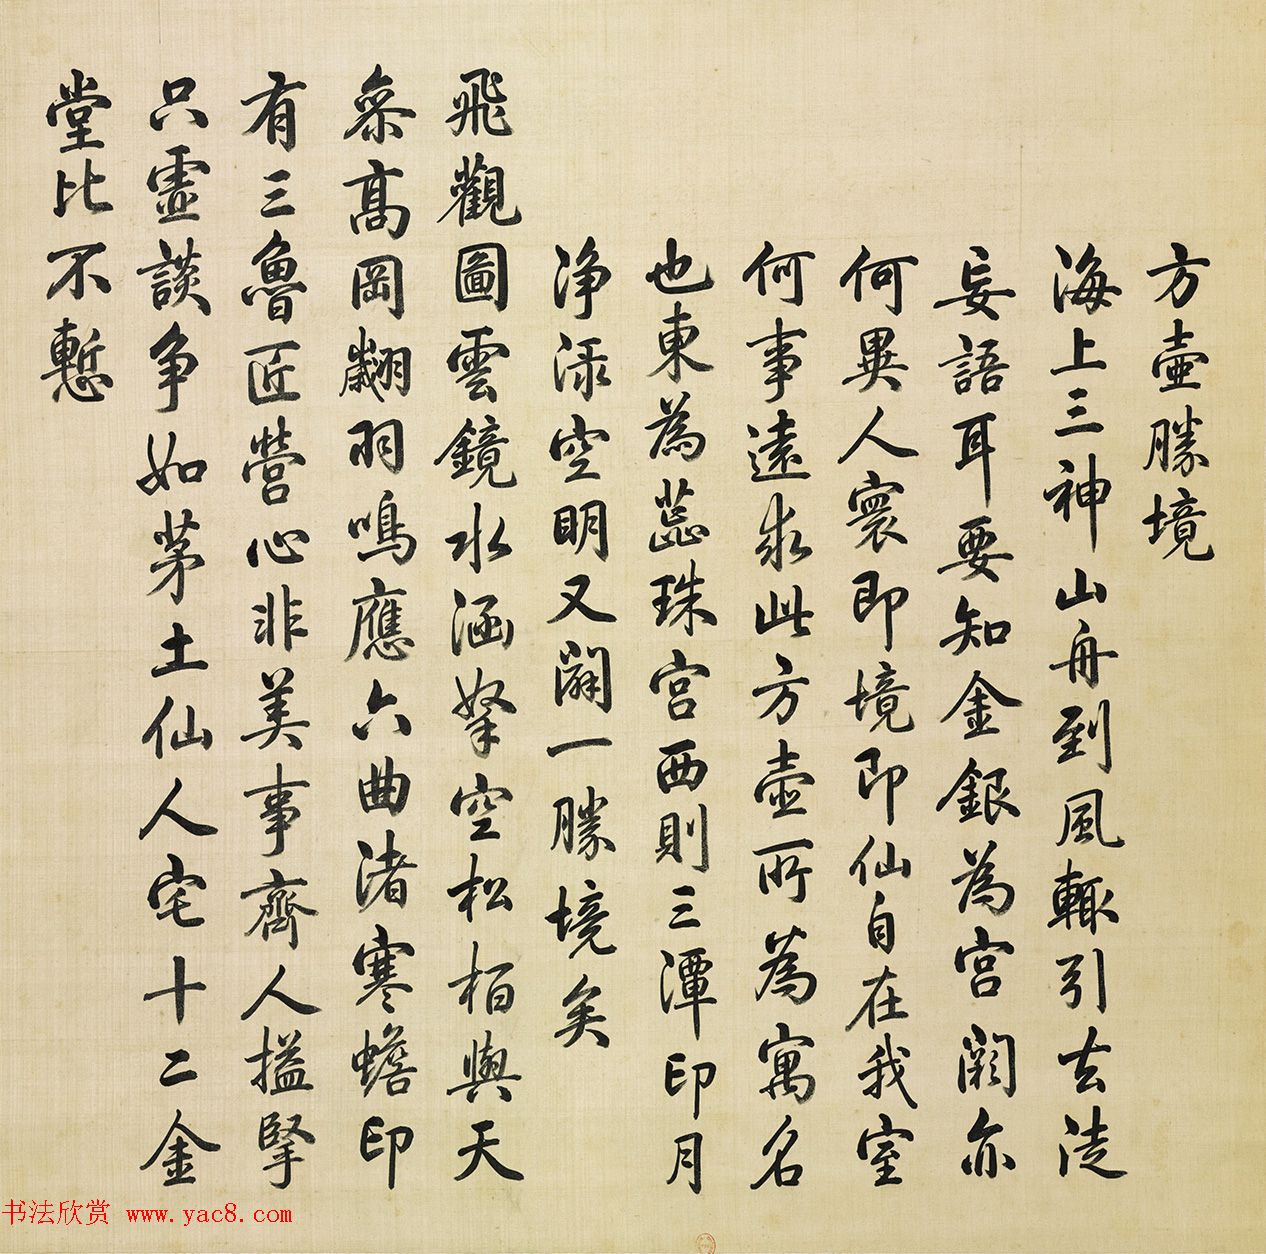 方壺勝境
海上三神山舟到風輒引去徒
妄語耳要知金銀為宮闕亦
何異人寰即境即仙自在我室
何事遠求此方壺所為寓名
也東為蕊珠宮西則三潭印月
淨渌空明又闢一勝境矣
飛觀圖雲鏡水涵拏空松栢與天
參高岡翽羽鳴應六曲渚寒蟾印
有三魯匠營心非美事齊人搤掔
只虛談爭如茅土仙人宅十二金
堂比不慙
书法欣赏 www.yac8.com